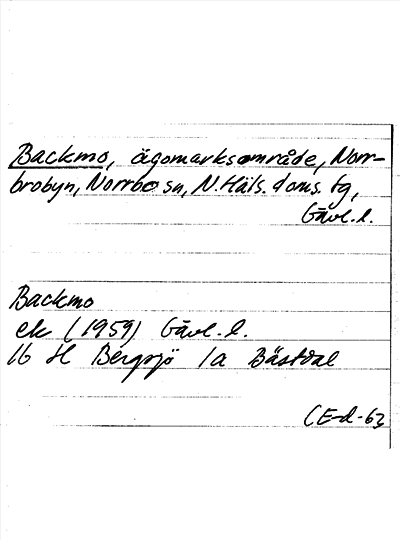 Backmo, ägomarksområde, Norr-
brobyn, Norrbo sn, N. Häls. doms. tg,
Gävl. l.
Backmo
ek (1959) Gävl. l.
16 H Bergsjö 1a Bästdal
CE-d-63